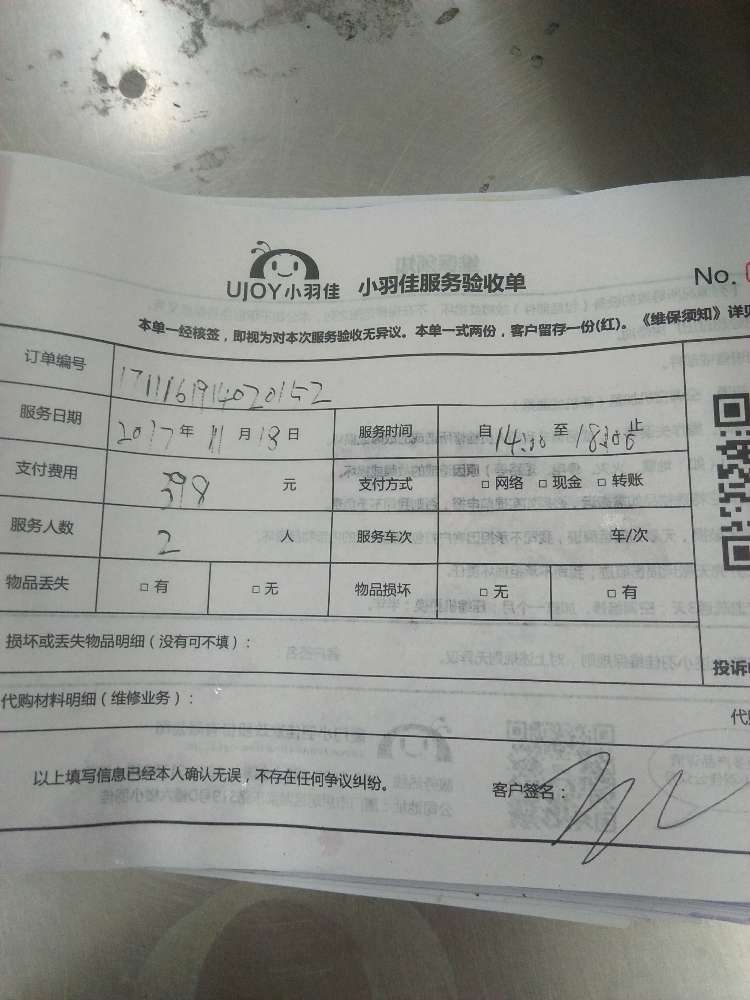 UJOY小羽佳 小羽佳服务验收单 No.
本单一经核签，即视为对本次服务验收无异议。本单一式两份，客户留存一份(红)。《维保须知》详见
订单编号 1711161914020152
服务日期 2017年 11月18日 服务时间 自14:00至18:00止
支付费用 398 元 支付方式 □ 网络 □ 现金 □ 转账
服务人数 2 人 服务车次 车/次
物品丢失 □ 有 □ 无 物品损坏 □ 无 □ 有
损坏或丢失物品明细（没有可不填）：
投诉
代购材料明细（维修业务）：
代
以上填写信息已经本人确认无误，不存在任何争议纠纷。 客户签名：